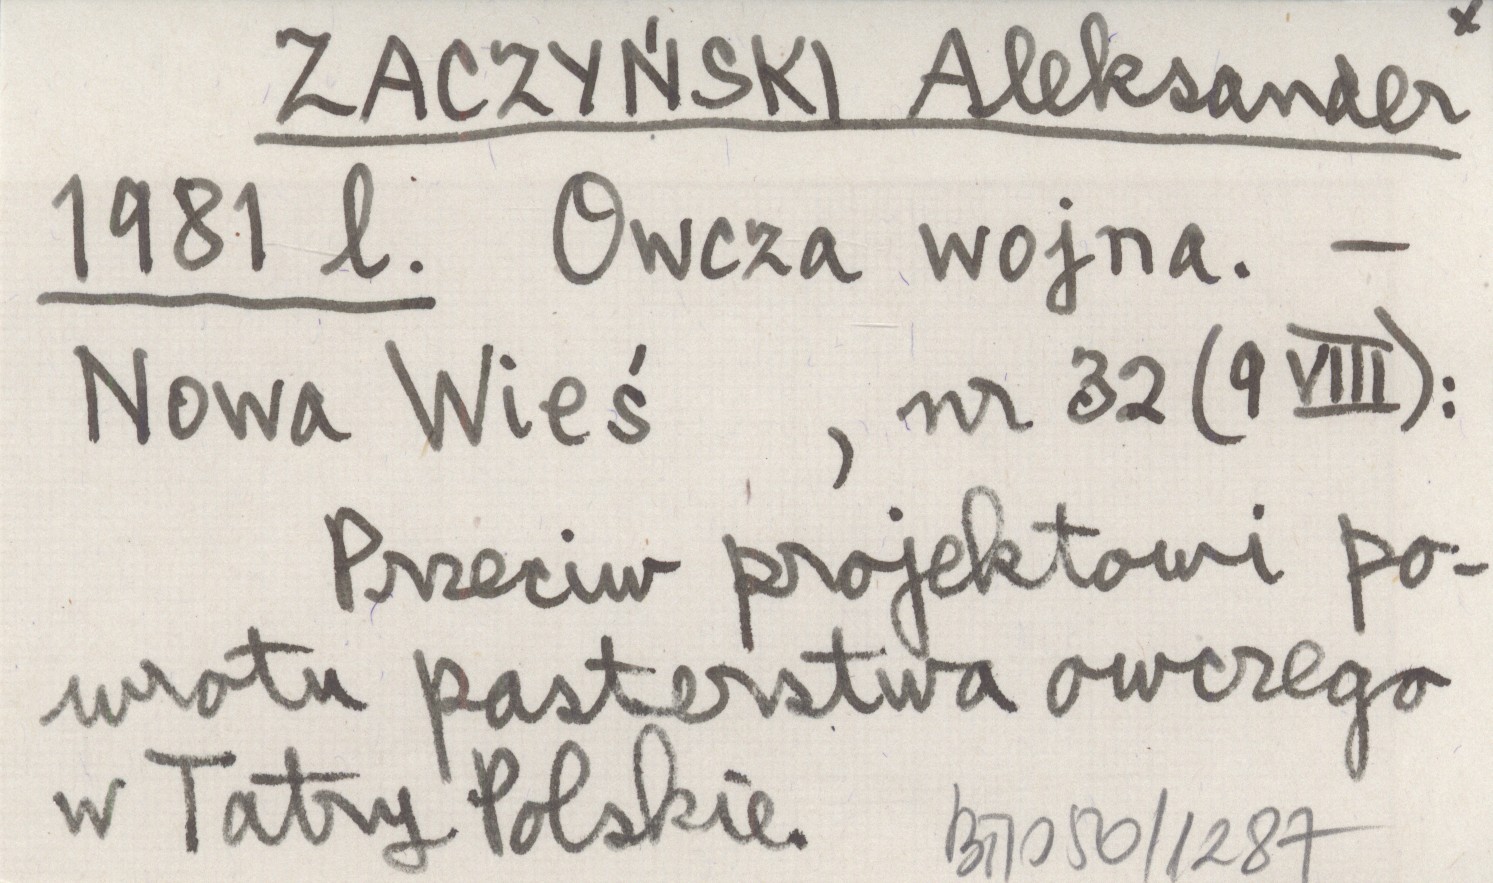 ZACZYŃSKI Aleksander x
1981 l. Owcza wojna. —
Nowa Wieś , nr 32 (9 VIII):
Przeciw projektowi po-
wrotu pasterstwa owczego
w Tatry Polskie.
50/1287